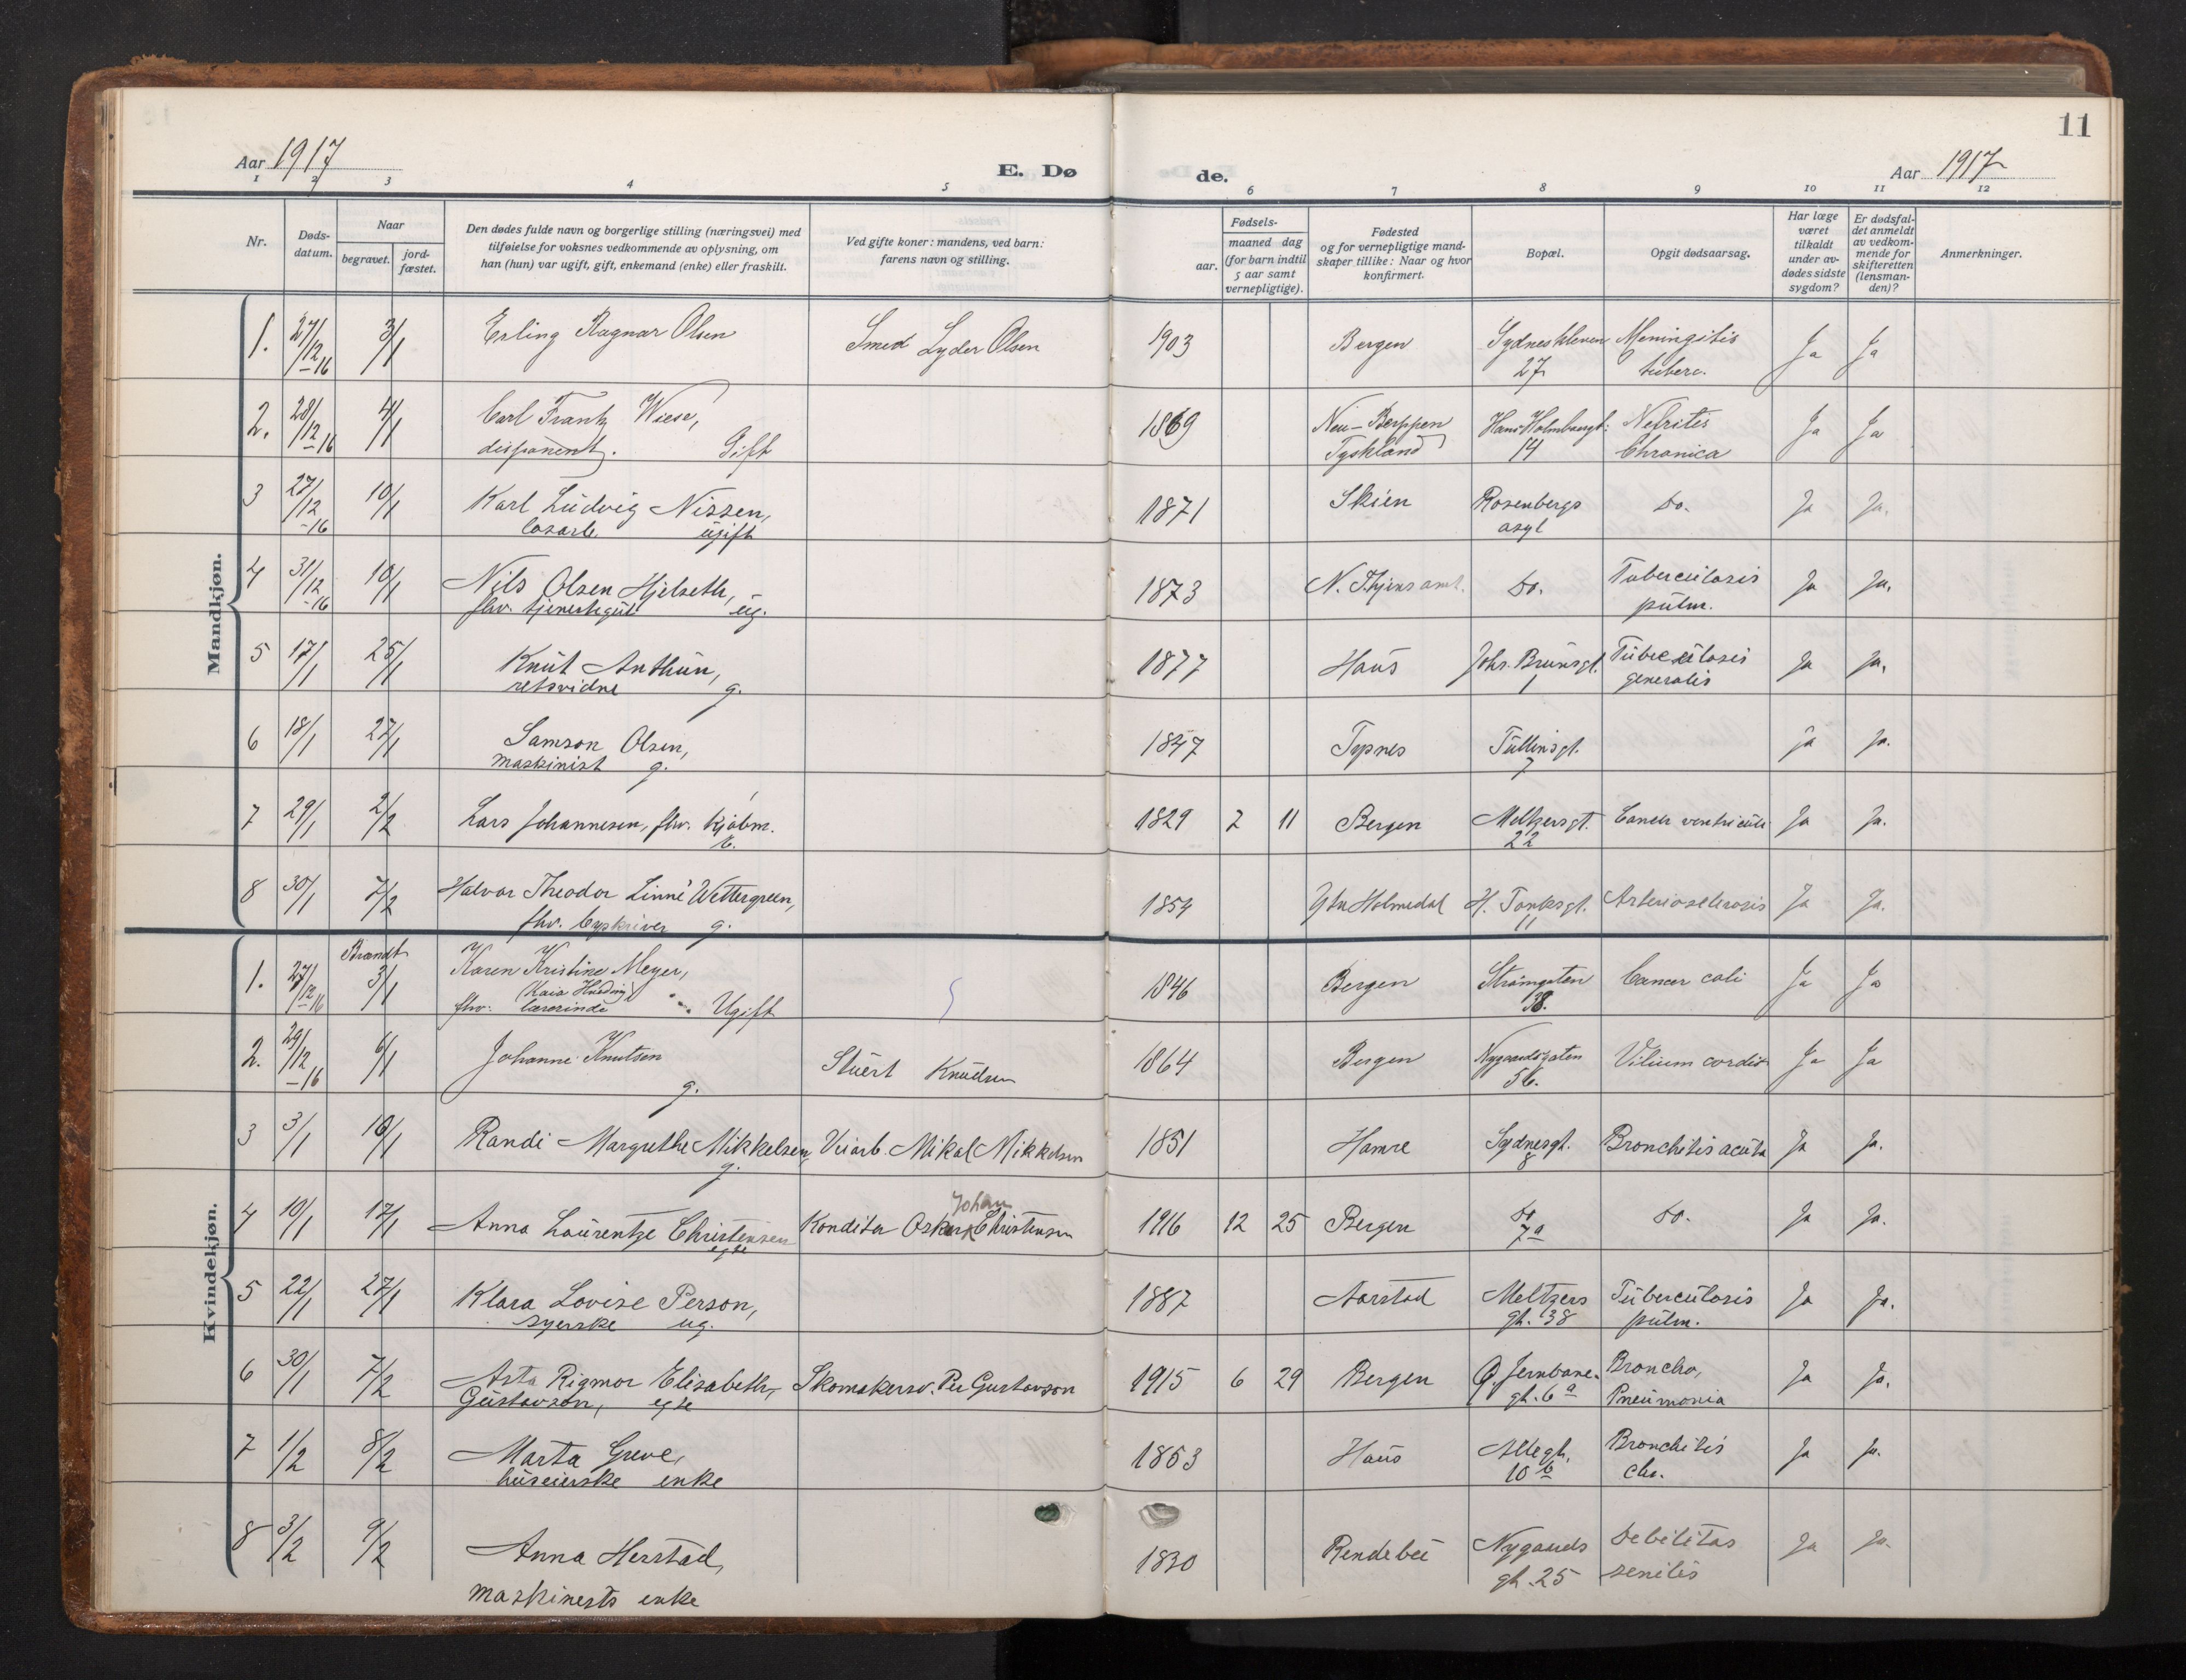 11
Aar 1917
E. Dø
de.
Aar 1917
1 2 3 4 5 6 7 8 9 10 11 12
Nr.
Døds-
datum.
Naar
begravet.
jord-
fæstet.
Den dødes fulde navn og borgerlige stilling (næringsvei) med
tilføielse for voksnes vedkommende av oplysning, om
han (hun) var ugift, gift, enkemand (enke) eller fraskilt.
Ved gifte koner: mandens, ved barn:
farens navn og stilling.
Fødsels-
aar.
maaned dag
(for barn indtil
5 aar samt
vernepligtige).
Fødested
og for vernepligtige mand-
skaper tillike: Naar og hvor
konfirmert.
Bopæl.
Opgit dødsaarsag.
Har læge
været
tilkaldt
under av-
dødes sidste
sygdom?
Er dødsfal-
det anmeldt
av vedkom-
mende for
skifteretten
(lensman-
den)?
Anmerkninger.
Mandkjøn.
1. 27/12-16 3/1 Erling Ragnar Olsen Smed Lyder Olsen 1903 Bergen Sydneskleven Meningitis Ja Ja
27 tuberc.
2. 28/12-16 4/1 Carl Frantz Wiese, 1869 Neu- Hans Holmboegt: Nefritis Ja Ja
disponent. Gift Tyskland 14 Chronica
3 27/12-16 10/1 Karl Ludvig Nissen, 1871 Skien Rosenbergs Do. Ja Ja.
løsarb. ugift asyl
4 31/12-16 10/1 Nils Olsen Hjelseth, 1873 N. Thjems amt. Do. Tuberculosis Ja Ja.
fhv. tjenestegut ug. pulm.
5 17/1 25/1 Knut Anthun, 1877 Haus Johs. Brunsgt. Tuberculosis Ja Ja.
retsvidne g. 1 generalis
6 18/1 27/1 Samson Olsen, 1847 Tysnes Tullinsgt. ja Ja.
maskinist g. 7
7 29/1 2/2 Lars Johannesen, fhv. kjøbm. 1829 2 11 Bergen Meltzersgt. Cancer ventriculi Ja Ja.
22
8 30/1 7/2 Halvor Theodor Linné Wettergreen, 1854 Ytre Holmedal H. Tanksgt. Arteriosclerosis Ja Ja.
fhv. byskriver g. 11
Kvindekjøn.
Brandt
1. 27/12-16 3/1 Karen Kristine Meyer, 1846 Bergen Strømgaten Cancer coli Ja Ja
fhv. lærerinde Ugift 38.
2. 29/12-16 6/1 Johanne Knutsen Stuert Knudsen 1864 Bergen Nygaardsgaten Vitium cordis Ja Ja
g. 56.
3 3/1 10/1 Randi Margrethe Mikkelsen, Veiarb. Mikal Mikkelsen 1851 Hamre Sydnesgt. Bronchitis acuta Ja Ja.
g. 8
Johan
4 10/1 17/1 Anna Laurentze Christensen Konditor Oskar Christensen 1916 12 25 Bergen do Do. Ja Ja.
egte 7a
5 22/1 27/1 Klara Lovise Person, 1887 Aarstad Meltzers Tuberculosis Ja Ja.
syerske ug. gt. 38 pulm.
6 30/1 7/2 Asta Rigmor Elisabeth, Skomakersv. Per Gustavson 1915 6 29 Bergen Ø. Jernbane- Broncho, Ja Ja.
Gustavson, egte gt. 6a Pneumonia
7 1/2 8/2 Marta Greve, 1853 Haus Allegt. Bronchitis Ja Ja.
huseierske enke 10 b chr.
8 3/2 9/2 Anna Herstad, 1830 Nygaards Debilitas Ja Ja.
maskinists enke gt. 25 senilis